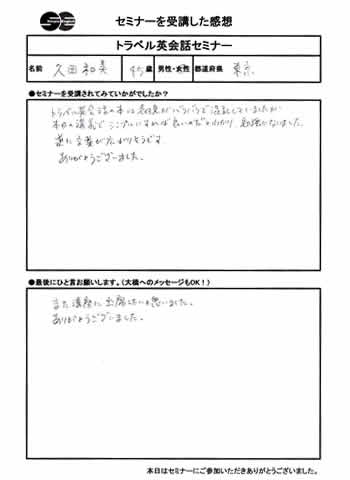 セミナーを受講した感想
トラベル英会話セミナー
名前 久田和美 45歳 男性・女性 都道府県 東京
●セミナーを受講されてみていかがでしたか?
トラベル英会話の本は表現がバラバラで混乱していましたが
本日の講義でシンプルにすれば良いのだとわかり 勉強になりました。
楽に言葉が
ありがとうございました。
●最後にひと言お願いします。(大橋へのメッセージもOK!)
また講座に出席したいと思いました。
ありがとうございました。
本日はセミナーにご参加いただきありがとうございました。